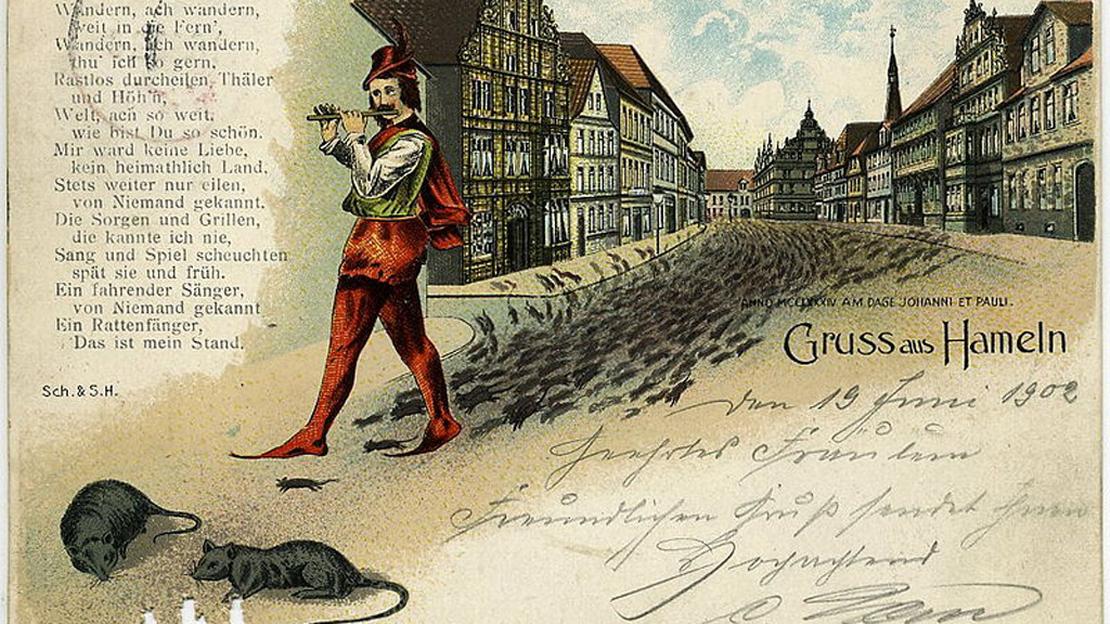 Wandern, ach wandern,
weit in die Fern',
Wandern, ach wandern,
thu' ich so gern.
Rastlos durcheilen Thäler
und Höh'n,
Welt, ach so weit,
wie bist Du so schön.
Mir ward keine Liebe,
kein heimathlich Land,
Stets weiter nur eilen,
von Niemand gekannt.
Die Sorgen und Grillen,
die kannte ich nie,
Sang und Spiel scheuchten
spät sie und früh.
Ein fahrender Sänger,
von Niemand gekannt
Ein Rattenfänger,
Das ist mein Stand.
Sch. & S.H.
ANNO MCCLXXXIV AM DAGE JOHANNI ET PAULI.
Gruss aus Hameln
den 19 Juni 1902
Geehrtes Fräulein
Freundlichen Gruß sendet Ihnen
Hochachtend